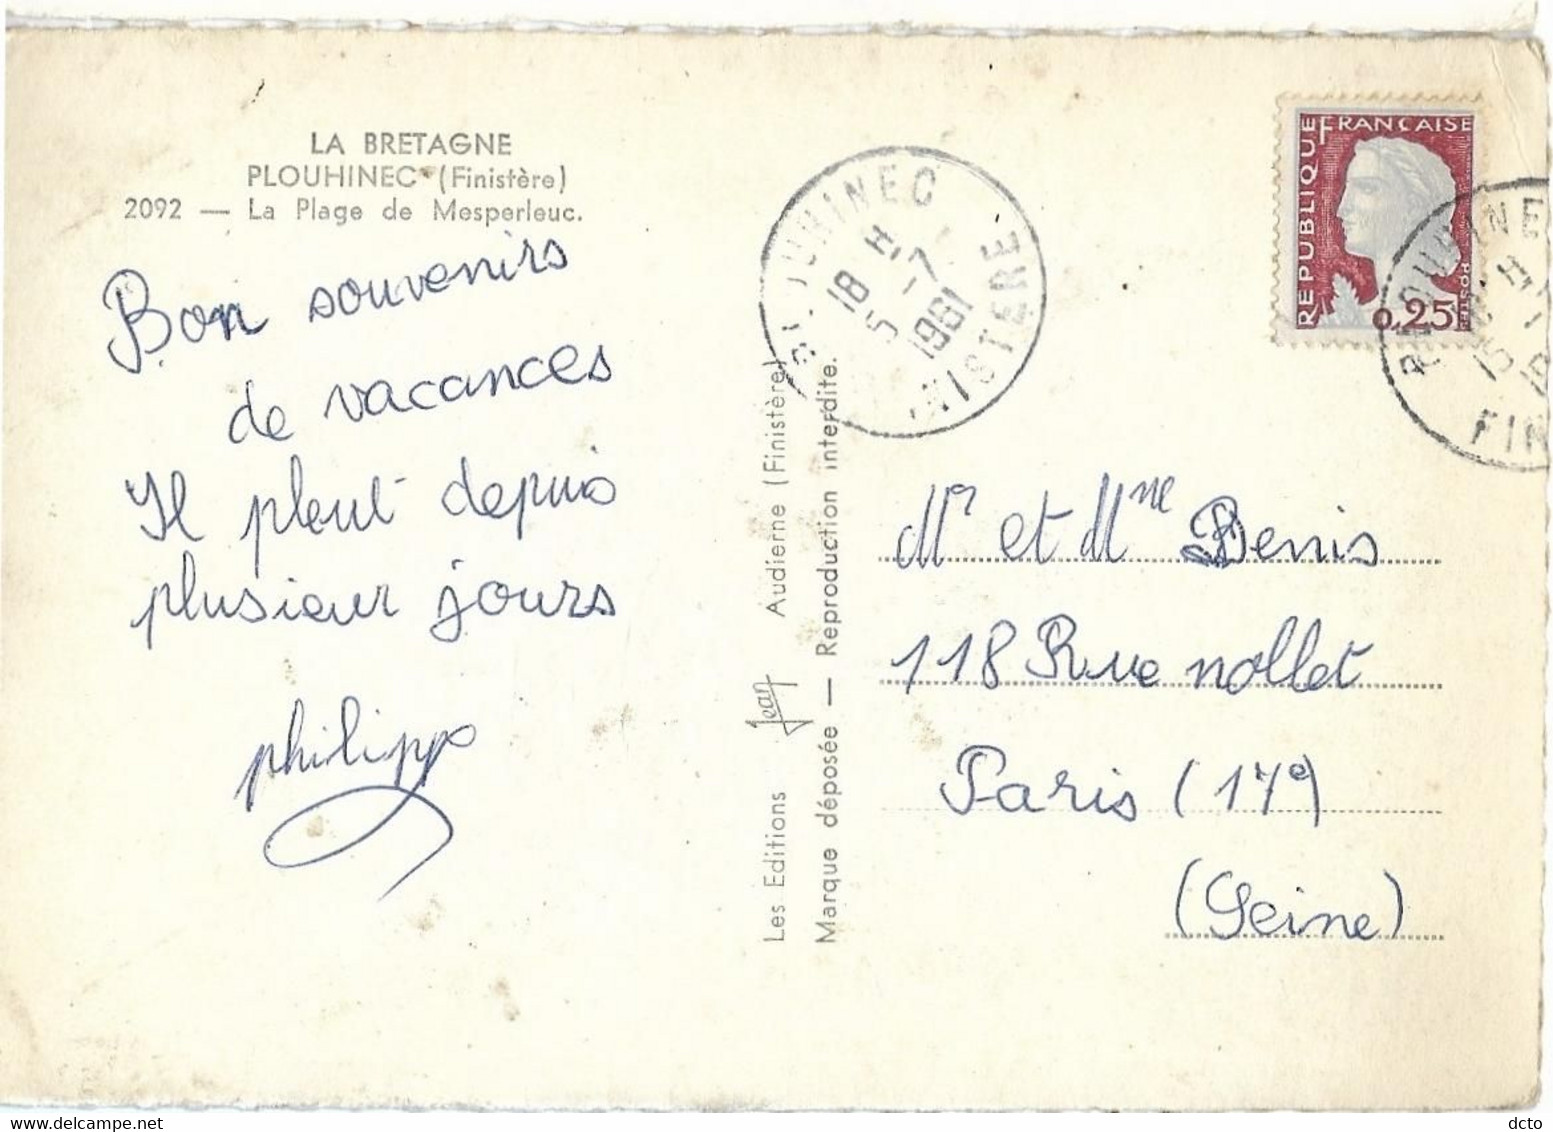 LA BRETAGNE
PLOUHINEC (Finistère)
2092 — La Plage de Mesperleuc.
Bon souvenirs
de vacances
Il pleut depuis
plusieur jours
philippe
Les Editions Jean Audierne (Finistère)
Marque déposée — Reproduction interdite.
PLOUHINEC
18 H
5 -7
1961
FINISTERE
REPUBLIQUE FRANCAISE
POSTES
0,25
PLOUHINE
FIN
Mr et Mme Denis
118 Rue nollet
Paris (17e)
(Seine)
dcto